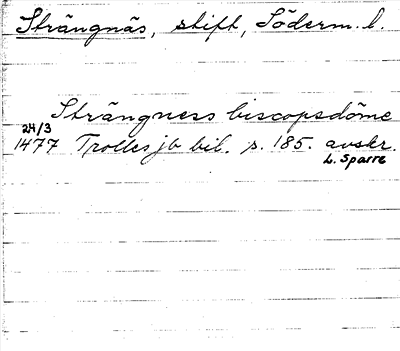 Strängnäs, stift, Söderm. l.
Strängness biscopsdöme
24/3
1477 Trolles jb bil. s. 185. avskr.
L. Sparre